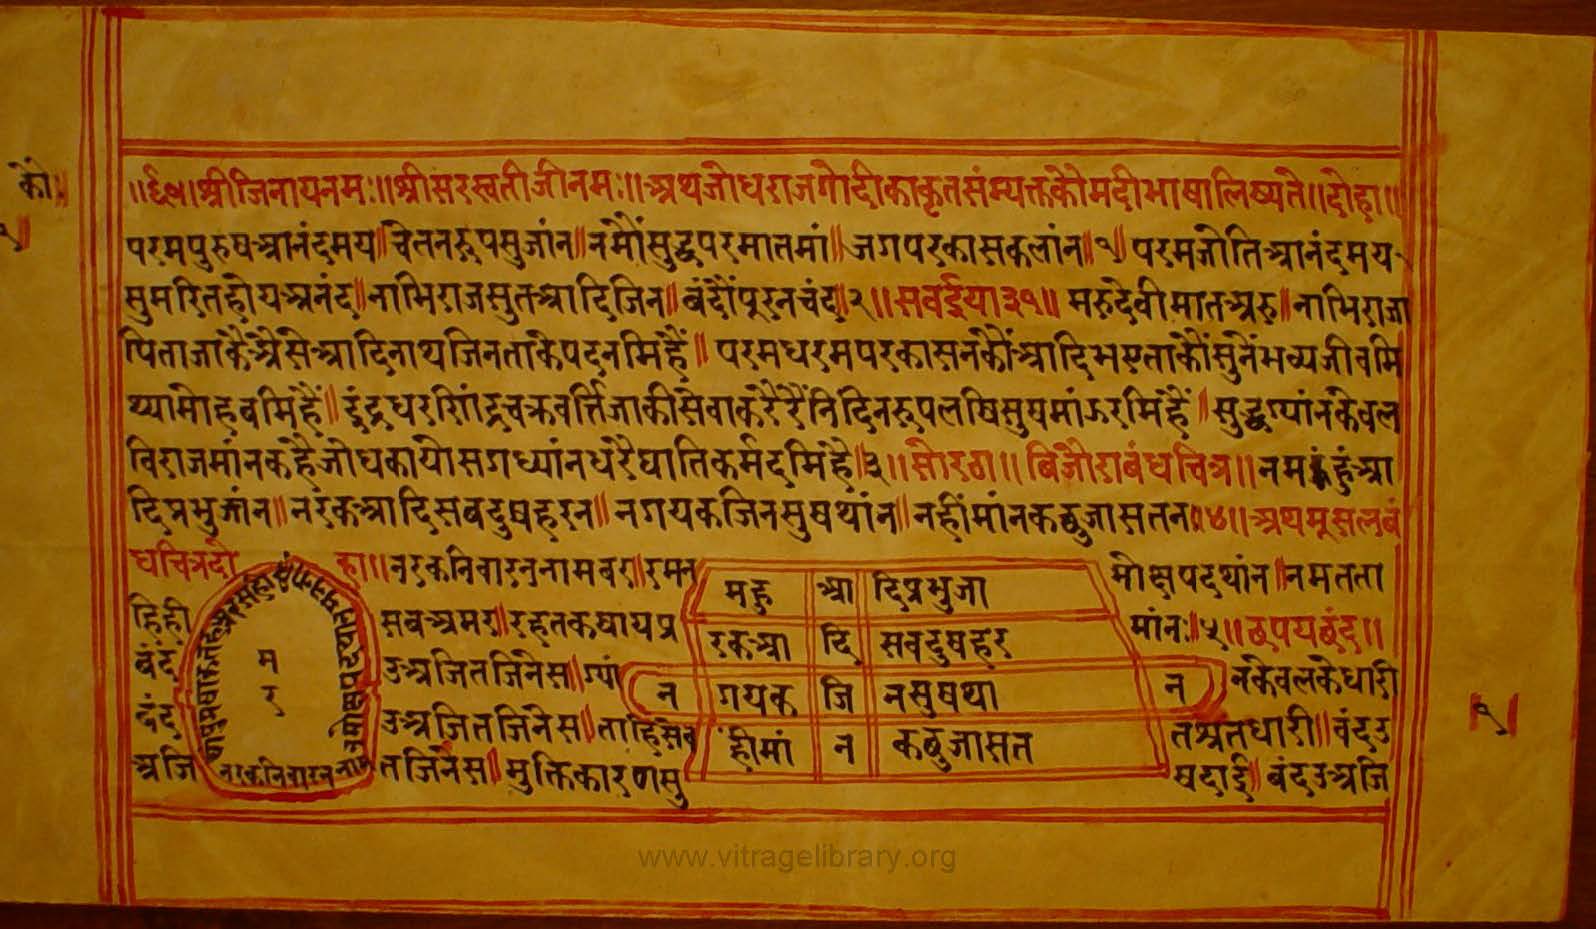 को॰॥
१॥
॥६॥९॥श्रीजिनायनमः॥श्रीसरस्वतीजीनमः॥अथजोधराजगोदीकाकृतसंम्यक्तकौमदीभाषालिष्यते॥दोहा॥
परमपुरुषआनंदमय॥चेतनरुपसुजांन॥नमौंसुद्धपरमातमां॥जगपरकासकलांन॥१॥परमजोतिआनंदमय
सुमरितहोयअनंद॥नाभिराजसुतआदिजिन॥बंदौंपूरनचंद॥२॥सवईया३१॥मरुदेवीमातअरु॥नाभिराजा
पिताजाकैऐसेआदिनाथजिनताकेपदनमिहैं॥परमधरमपरकासनकौंआदिभएताकौंसुनैंभव्यजीवमि
थ्यामोहवमिहैं॥इंद्रधररिगिंद्रचक्रवर्त्तिजाकीसेवाकरैरैंनिदिनरुपलषिसुषमांऊरमिहैं॥सुद्धग्यांनकेवल
विराजमांनकहैजोधकायोसगध्यांनधरैघातिकर्मदमिहै॥३॥सोरठा॥बिजौराबंधचित्र॥नमहुंआ
दिप्रभुजांन॥नरंकआदिसवदुषहरन॥नगयकजिनसुषथांन॥नहींमांनकछुजासतन॥४॥अथमूसलबं
धचित्रदोहा॥नरकनिवारननामबर॥रमन मोक्षपदथांन॥नमतता
हिही सबअमर॥रहतकषायप्र मांनः॥५॥छपयछंद॥
बंद उअजितजिनेस॥ग्यां नकेवलकेधारी
दंद उअजितजिनेस॥ताहिसेव तश्रतधारी॥वंदउ
अजि तजिनेस॥मुक्तिकारणसु षदाई॥बंदउअजि
म
र
नरकनिवारनना
मह आ दिप्रभुजा
रकआ दि सवदुषहर
न गयक जि नसुषथा न
हीमां न कछुजासत
१
www.vitragelibrary.org